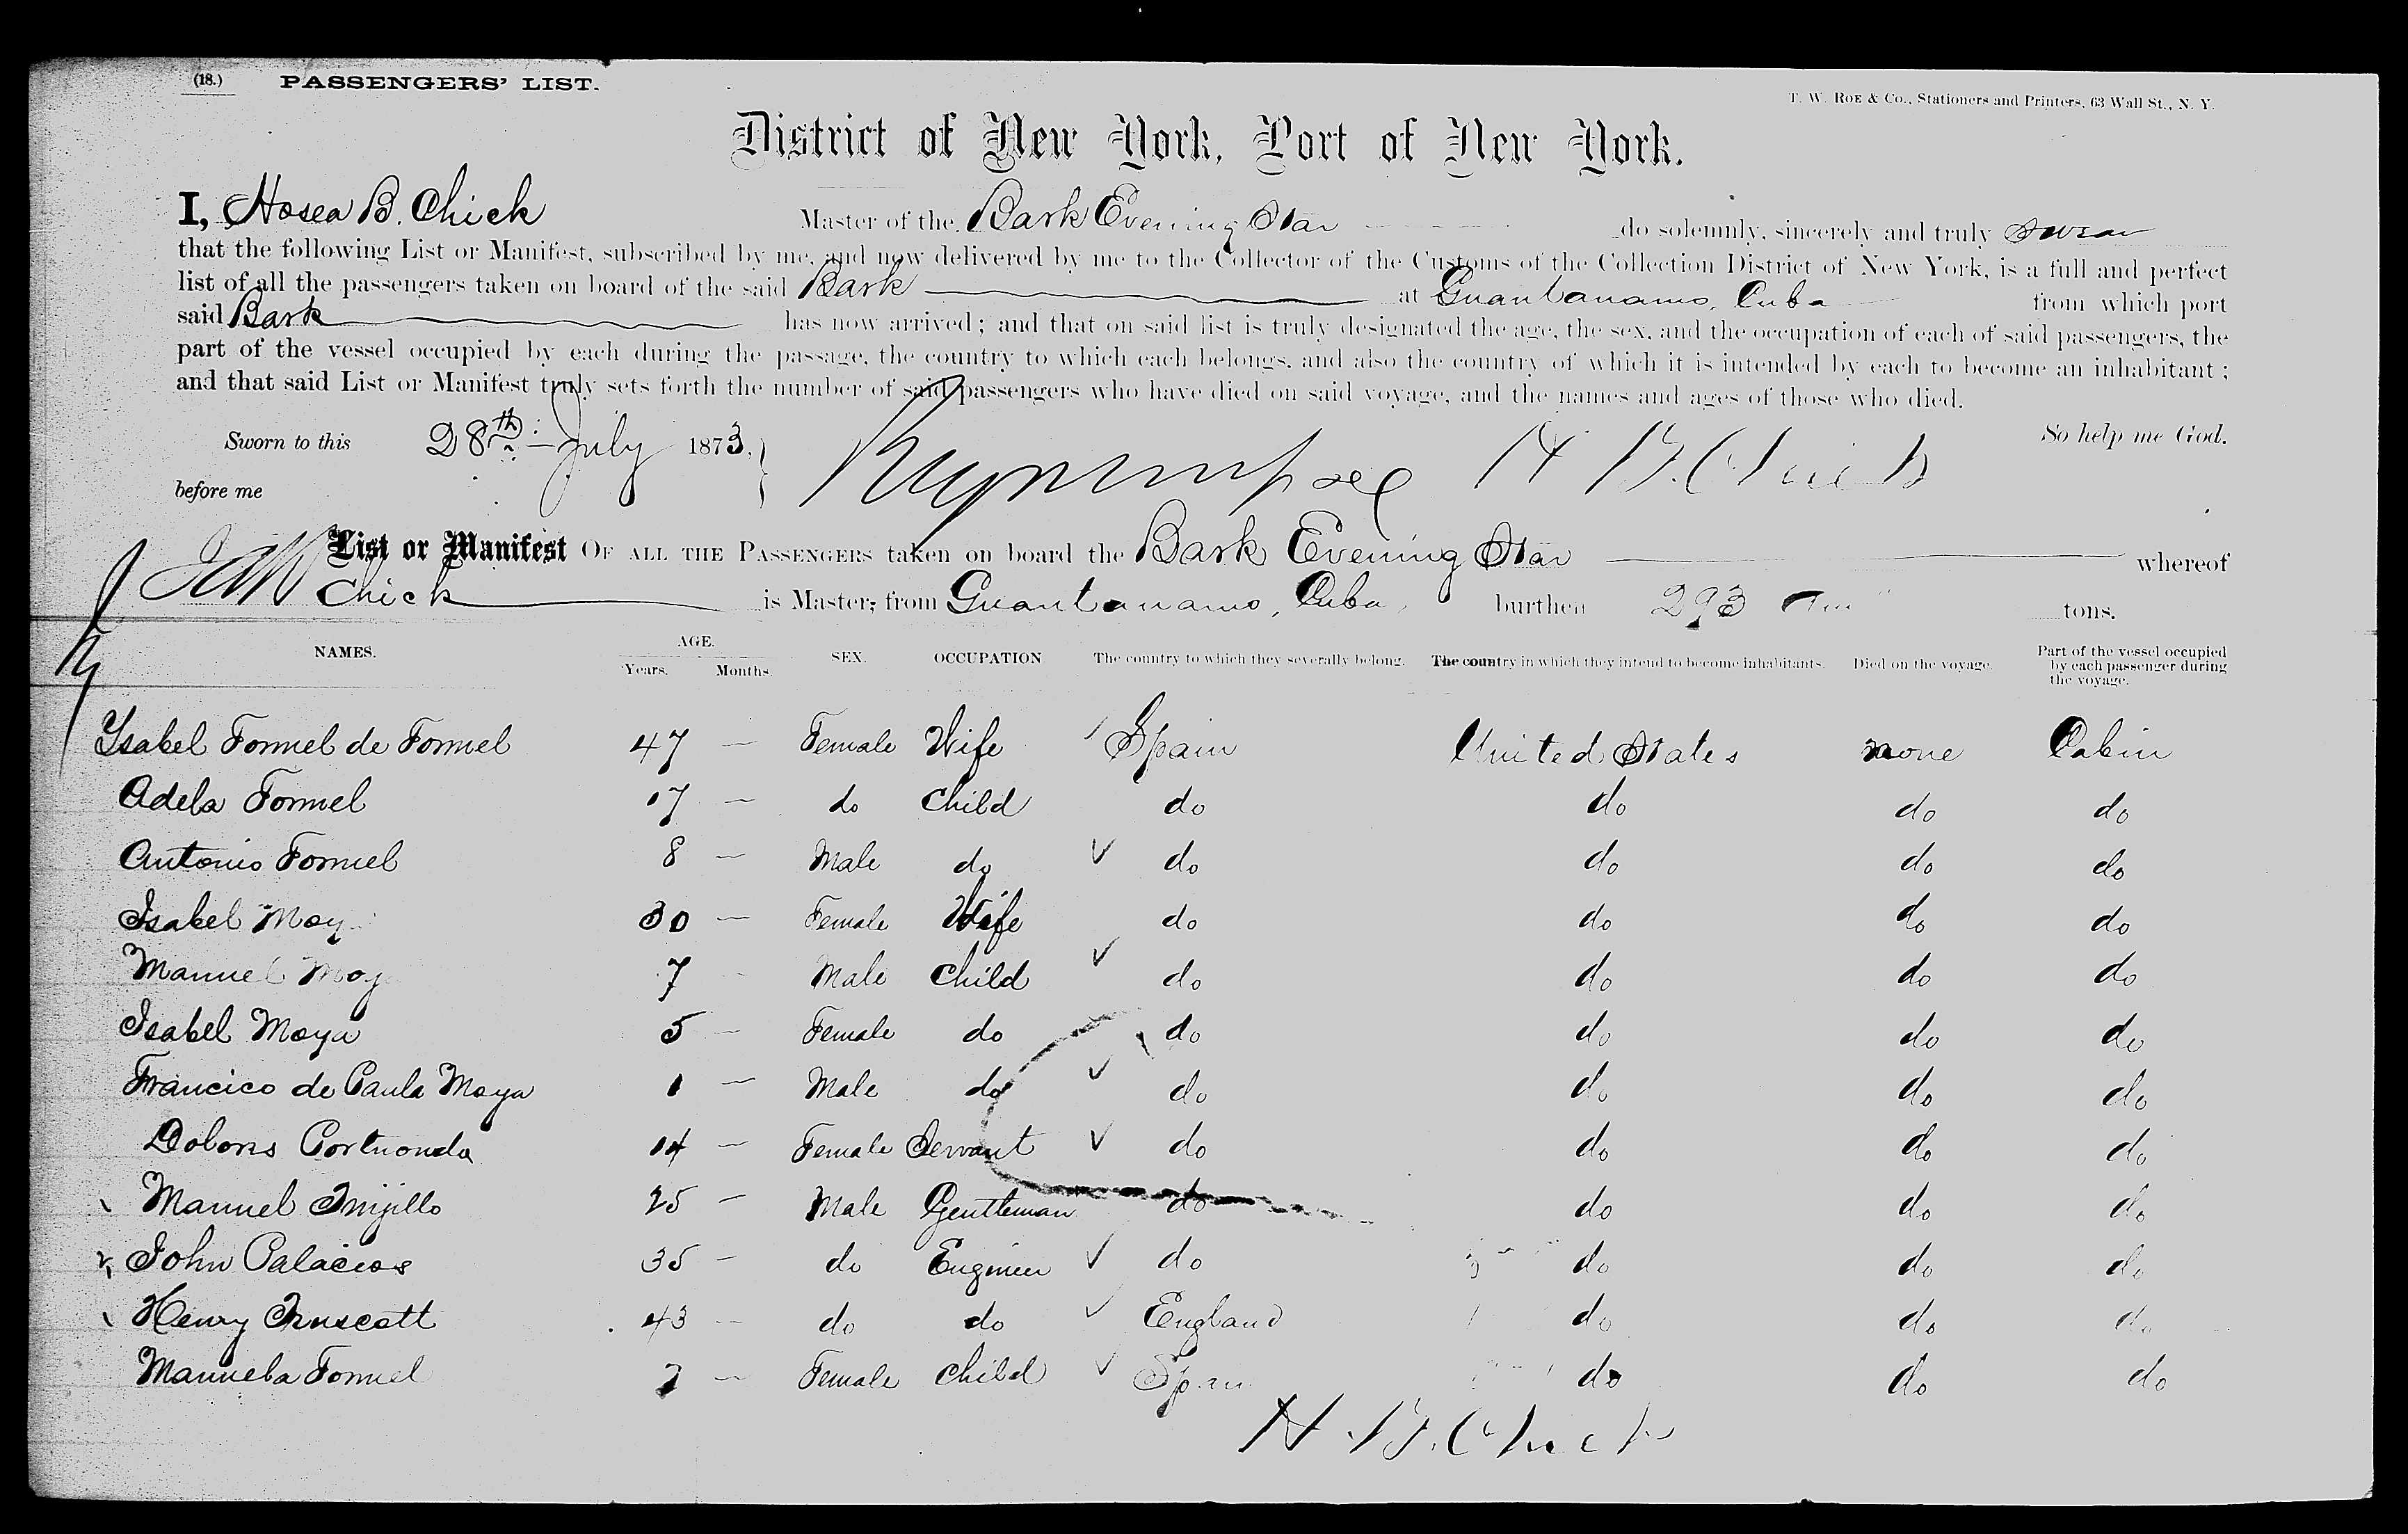 (18.) PASSENGERS' LIST.
T. W. ROE & Co., Stationers and Printers, 63 Wall St., N. Y.
District of New York, Port of New York.
I, Hosea B. Chick Master of the Bark Evening Star do solemnly, sincerely and truly swear
that the following List or Manifest, subscribed by me, and now delivered by me to the Collector of the Customs of the Collection District of New York, is a full and perfect
list of all the passengers taken on board of the said Bark at Guantanamo, Cuba from which port
said Bark has now arrived; and that on said list is truly designated the age, the sex, and the occupation of each of said passengers, the
part of the vessel occupied by each during the passage, the country to which each belongs, and also the country of which it is intended by each to become an inhabitant;
and that said List or Manifest truly sets forth the number of said passengers who have died on said voyage, and the names and ages of those who died.
So help me God.
Sworn to this 28th July 1873. H B. Chick
before me
List or Manifest OF ALL THE PASSENGERS taken on board the Bark Evening Star whereof
Chick is Master; from Guantanamo, Cuba, burthen 293 tons.
NAMES. AGE. Years. Months. SEX. OCCUPATION The country to which they severally belong. The country in which they intend to become inhabitants. Died on the voyage. Part of the vessel occupied by each passenger during the voyage.
Ysabel Formel de Formel 47 — Female Wife Spain United States none Cabin
Adela Formel 17 — do Child do do do do
Antonio Formel 8 — Male do do do do do
Isabel Moy 30 — Female Wife do do do do
Manuel Moy 7 Male Child do do do do
Isabel Moya 5 — Female do do do do do
Francico de Paula Moya 1 — Male do do do do do
Dolores Portuonda 14 — Female Servant do do do do
Manuel Trujillo 25 — Male Gentleman do do do do
John Palacios 35 — do Engineer do do do do
Henry Truscott 43 — do do England do do do
Manuela Formel 2 — Female Child Spain do do do
H. B. Chick